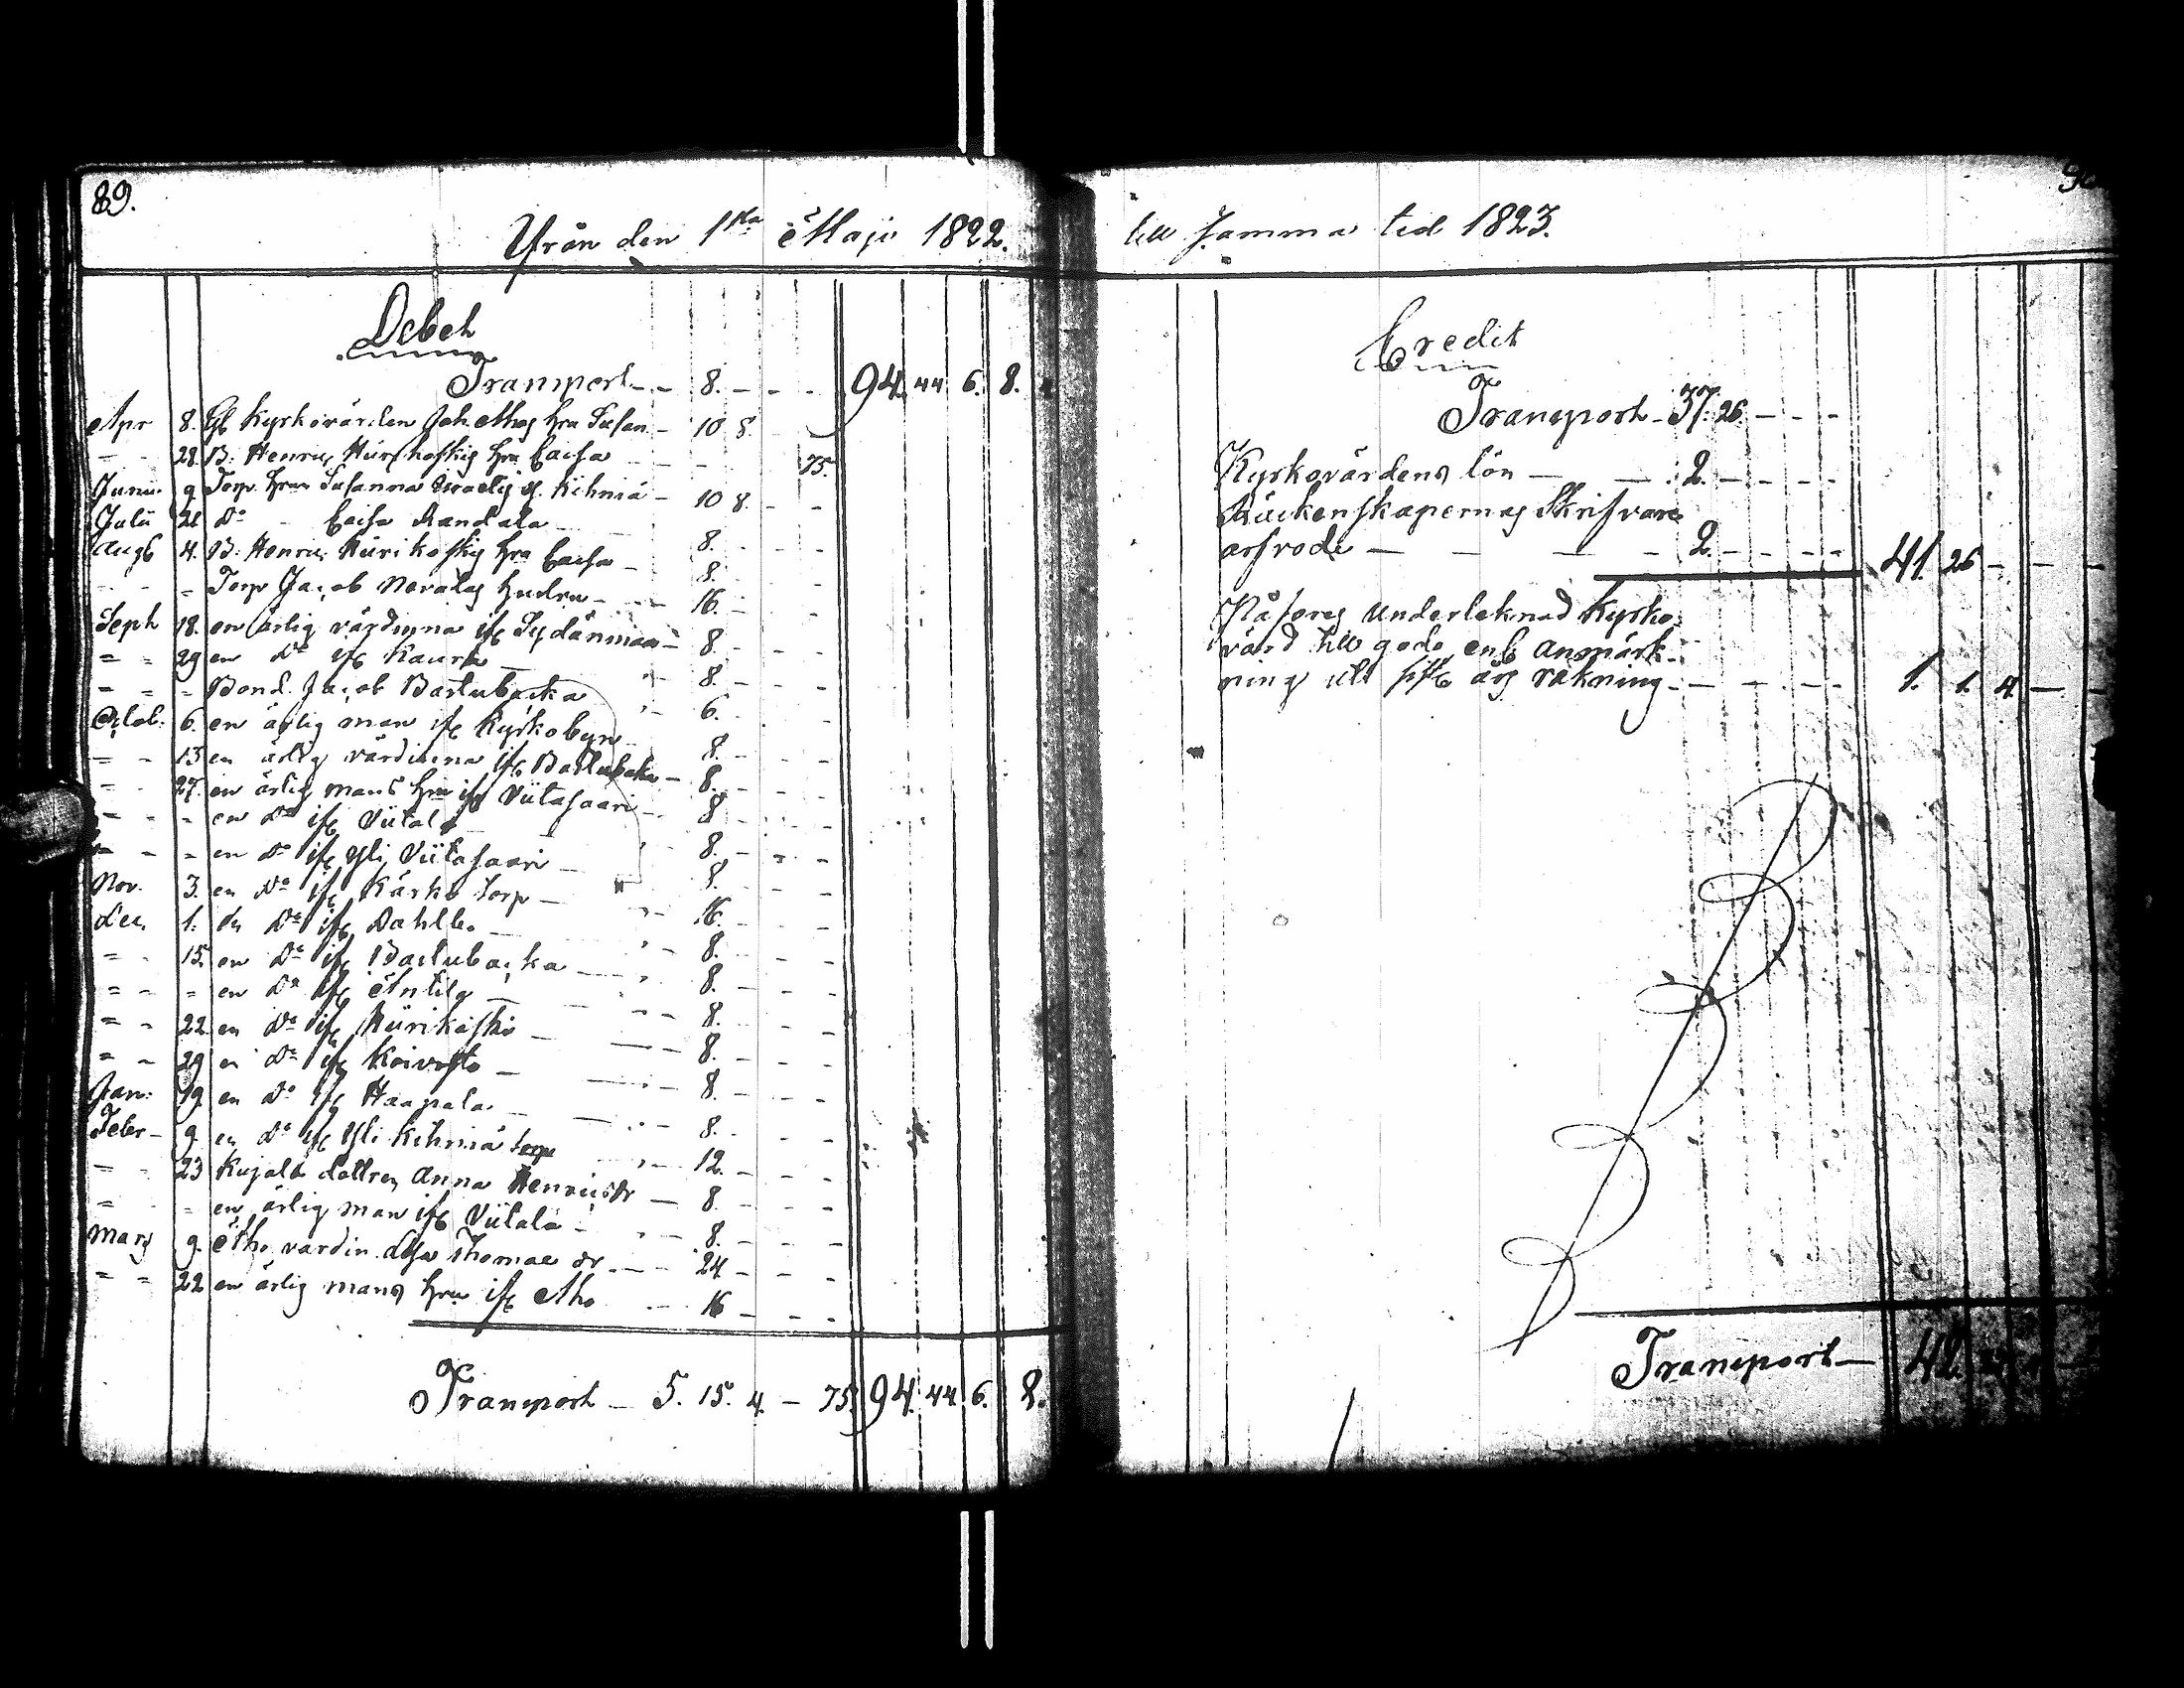 89.
Från den 1sta Maji 1822.
Debet
Transport - 8. - - - 94. 44 6. 8.
Apr 8. Gl Kyrkovärden Joh. Ahos hru Susan - 10 8.
- - 28. B: Henric Niiriskoskis hru Caisa - - - 75.
Junii 9 Torp. hrun Susanna Israelis df. Kihniä - 10 8. - -
Julii 21 Do - Caisa Randala - 8. - - -
Aug 4. B. Henric Niirikoskis hru Caisa - 8. - - -
- - - Torp Jacob Neralas hustru - 16. - - -
Sept 18. en ärlig värdinna if Sydänmaa - 8. - - -
= - 29 en do if Kaura - 8. - - -
= - = Bond. Jacob Bastubacka - 6. - -
Octob. 6. en ärlig man if Kyrkobyn - 8. - - -
= - 13 en ärlig värdinna if Bastubaka - 8. - - -
= - 27. en ärlig mans hru if Viitasaari - 8 - - -
= - = en do if Viitala - 8. - - -
= - = en do if Yli Viitasaari - 8. - - -
Nov. 3. en do if Kärko torp - 16. - - -
Dec. 1. en do if Dahlbo - 8. - - -
= - 15. en do if Bastubacka - 8. - - -
= - = en do if Antila - 8. - - -
= - 22. en do if Niirikoski - 8. - - -
= - 29 en do if Koivisto - 8. - - -
Jan: 19 en do if Haapala - 8. - - -
Febr - 9 en do if Yli Kihniä torp - 12. - - -
= - 23 Kujala dottren Anna Henricsdr - 8. - - -
= - = en ärlig man if Viitala - 8. - - -
Mars 9. Aho värdin. Thomae dr. - 24 - - -
= = 22 en ärlig mans hru if Aho - 16 - - -
Transport - 5. 15. 4 - 75. 94. 44. 6. 8.
till samma tid 1823.
Credit
Transport - 37. 26. - - -
Kyrkovärdens lön - - 2. - - -
Räckenskapernas Skrifvare
arfvode - - - - 2. - - - 41. 26 - - -
Påföres underteknad Kyrko-
värd till godo enl. anmärk-
ning vid sist års räkning - - - 1. 1. 4 - -
Transport - 42.